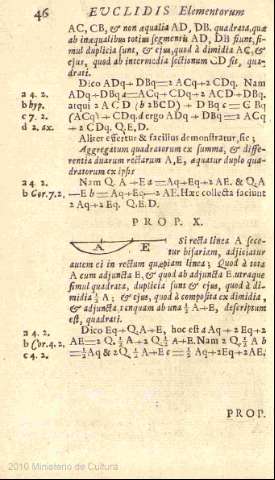 46 EUCLIDIS Elementorum
AC, CB, & non æqualia AD, DB. quadrata, quæ
ab inæqualibus totius segmentis AD, DB fiunt, si-
mul duplicia sunt, & ejus, quod à dimidia AC, &
ejus, quod ab intermedia sectionum CD fit, qua-
drati.
Dico ADq + DBq = 2 ACq + 2 CDq. Nam
a 4. 2. ADq + DBq a = ACq + CDq + 2 ACD + DBq.
b hyp. atqui 2 A C D (b 2 BCD) + D Bq c = C Bq
c 7. 2. (ACq) + CDq. d ergo ADq + DBq = 2 ACq
d 2. ax. + 2 CDq. Q.E.D.
Aliter effertur & facilius demonstratur, sic;
Aggregatum quadratorum ex summa, & diffe-
rentia duarum rectarum A, E, æquatur duplo qua-
dratorum ex ipsis
a 4. 2. Nam Q. A + E a = Aq + Eq + 2 AE. & Q. A
b Cor. 7. 2. — E b = Aq + Eq — 2 AE. Hæc collecta faciunt
2 Aq + 2 Eq. Q.E.D.
PROP. X.
A E
Si recta linea A sece-
tur bifariam, adjiciatur
autem ei in rectum quæpiam linea; Quod à tota
A cum adjuncta E, & quod ab adjuncta E utraque
simul quadrata, duplicia sunt & ejus, quod à di-
midia ½ A; & ejus, quod à composita ex dimidia,
& adjuncta, tanquam ab una ½ A + E, descriptum
est, quadrati.
a 4. 2. Dico Eq + Q. A + E, hoc est a Aq + 2 Eq + 2
b Cor. 4. 2. AE = 2 Q. ½ A + 2 Q. ½ A + E. Nam 2 Q. ½ A b
c 4. 2. = ½ Aq & 2 Q. ½ A + E c = ½ Aq + 2 Eq + 2 AE.
PROP.
2010 Ministerio de Cultura